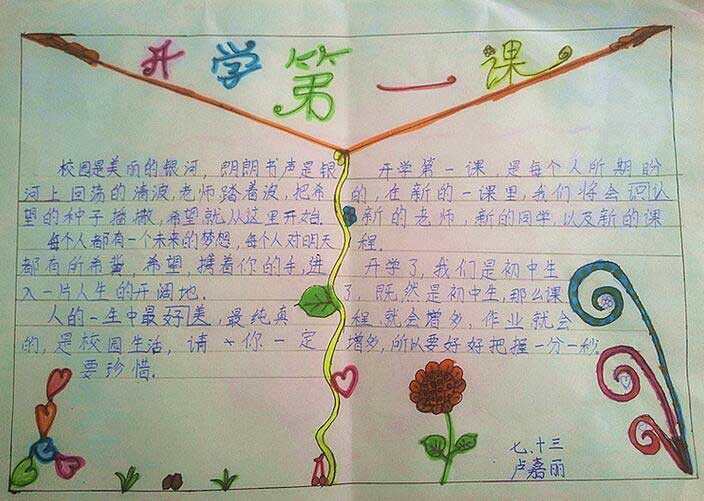 开学第一课
校园是美丽的银河，朗朗书声是银
河上回荡的清波，老师踏着波，把希
望的种子播撒，希望就从这里开始。
每个人都有一个未来的梦想，每个人对明天
都有所希望，希望，携着你的手，进
入一片人生的开阔地。
人的一生中最好美，最纯真
的，是校园生活，请你一定
要珍惜。
开学第一课，是每个人所期盼
的，在新的一课里，我们将会识认
新的老师，新的同学，以及新的课
程。
开学了，我们是初中生
了，既然是初中生，那么课
程就会增多，作业就会
增多，所以要好好把握一分一秒。
七、十三
卢嘉丽